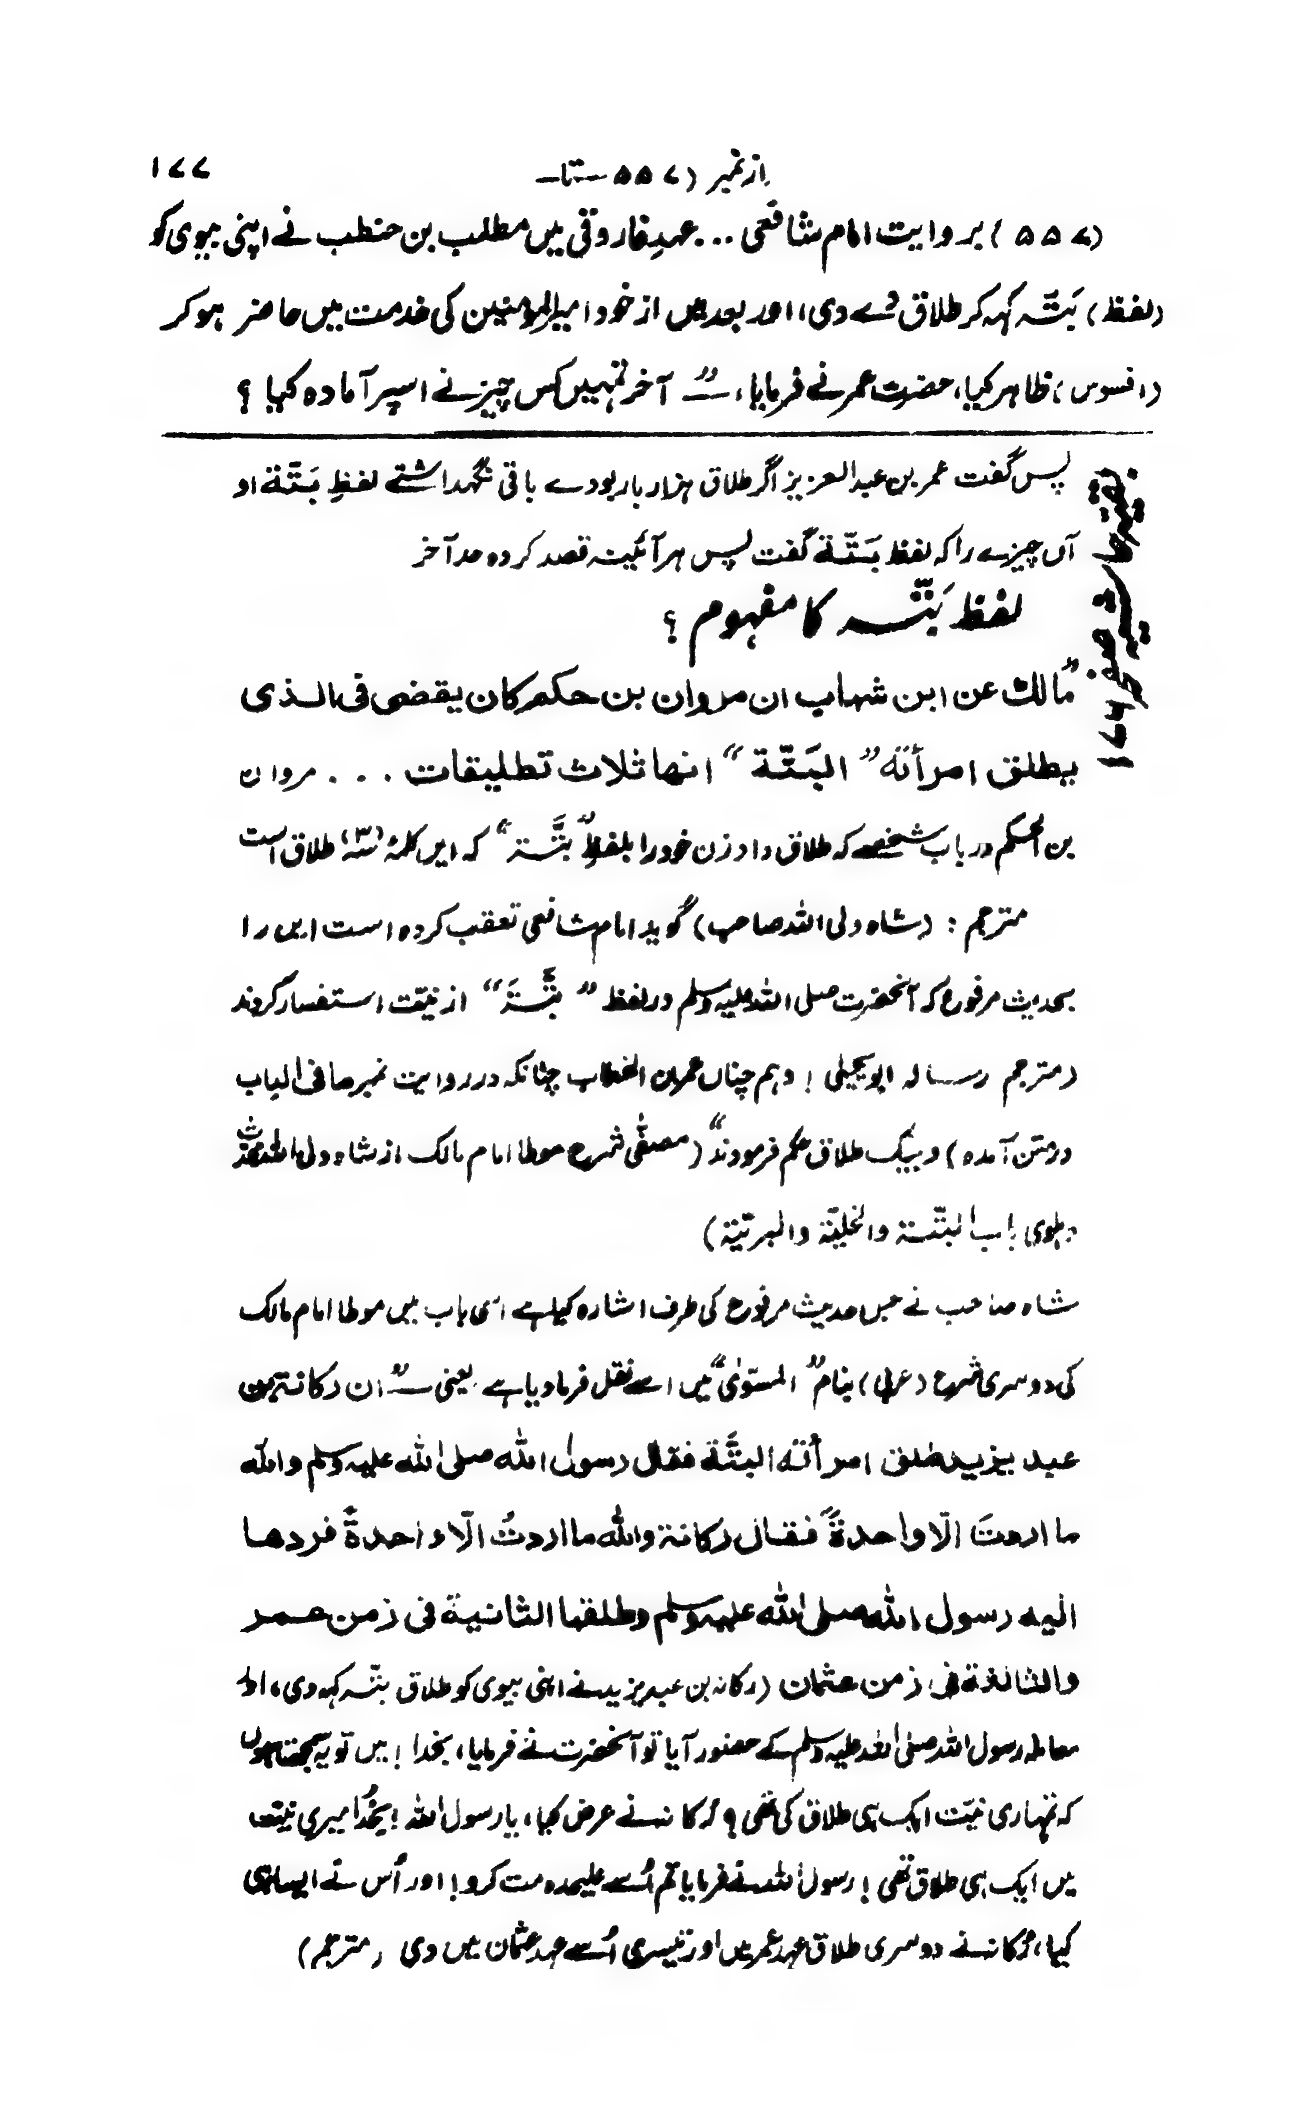 از نمبر (۵۵۷ ستا ۱۷۷
(۵۵۷) بروایت امام شافعی ... عہدِ فاروقی میں مطلب بن حنطب نے اپنی بیوی کو
(لفظ) بَتّہ کہہ کر طلاق دے دی، اور بعد میں از خود امیر المومنین کی خدمت میں حاضر ہو کر
(افسوس) ظاہر کیا، حضرت عمر نے فرمایا، "آخر تمہیں کس چیز نے اسپر آمادہ کیا ؟
بقیہ حاشیہ صفحہ ۱۷۶
پس گفت عمر بن عبد العزیز اگر طلاق ہزار بار بودے باقی نگہداشتے لفظِ بَتَّة او
آں چیزے را کہ لفظ بَتَّة گفت پس ہر آئینہ قصد کردہ حد آخر
لفظ بَتّہ کا مفہوم ؟
"مالك عن ابن شهاب ان مروان بن حكم كان يقضى فى الذى
يطلق امرأته "البَتّة" انها ثلاث تطليقات . . . مروان
بن الحکم در باب شخصے کہ طلاق داد زن خود را بلفظ "بَتَّة" کہ ایں کلمۂ (۳) سہ طلاق است
مترجم : (شاہ ولی اللہ صاحب) گوید امام شافعی تعقب کردہ است ایں را
بحدیث مرفوع کہ آنحضرت صلی اللہ علیہ وسلم در لفظ "بَتَّةَ" از نیّت استفسار کردند
(مترجم رسالہ ابو یحییٰ ! وہم چناں عمر بن الخطاب چنانکہ در روایت نمبر ما فی الباب
در متن آمدہ) و بیک طلاق حکم فرمودند" (مصفّٰی شرح موطا امام مالک از شاہ ولی اللہ محدث
دہلوی باب البتّة والخلیّة والبریّة)
شاہ صاحب نے جس حدیث مرفوع کی طرف اشارہ کیا ہے اسی باب میں موطا امام مالک
کی دوسری شرح (عربی) بنام "المسوّیٰ" میں اسے نقل فرما دیا ہے یعنی "ان ركانة بن
عبد يزيد طلق امرأته البتَّة فقال رسول الله صلى الله عليه وسلم والله
ما اردتَ الّا واحدةً فقال ركانة والله ما اردتُ الّا واحدةً فردها
اليه رسول الله صلى الله عليه وسلم وطلقها الثانية فى زمن عمر
والثالثة فى زمن عثمان (رکانہ بن عبد یزید نے اپنی بیوی کو طلاق بتّہ کہہ دی، اور
معاملہ رسول اللہ صلی اللہ علیہ وسلم کے حضور آیا تو آنحضرت نے فرمایا، بخدا ! میں تو یہ سمجھتا ہوں
کہ تمہاری نیّت ایک ہی طلاق کی تھی ؟ رکانہ نے عرض کیا، یا رسول اللہ ! بخُدا میری نیّت
میں ایک ہی طلاق تھی ! رسول اللہ نے فرمایا تم اُسے علیحدہ مت کرو ! اور اُس نے ایسا ہی
کیا، رکانہ نے دوسری طلاق عہد عمر میں اور تیسری اُسے عہد عثمان میں دی (مترجم)